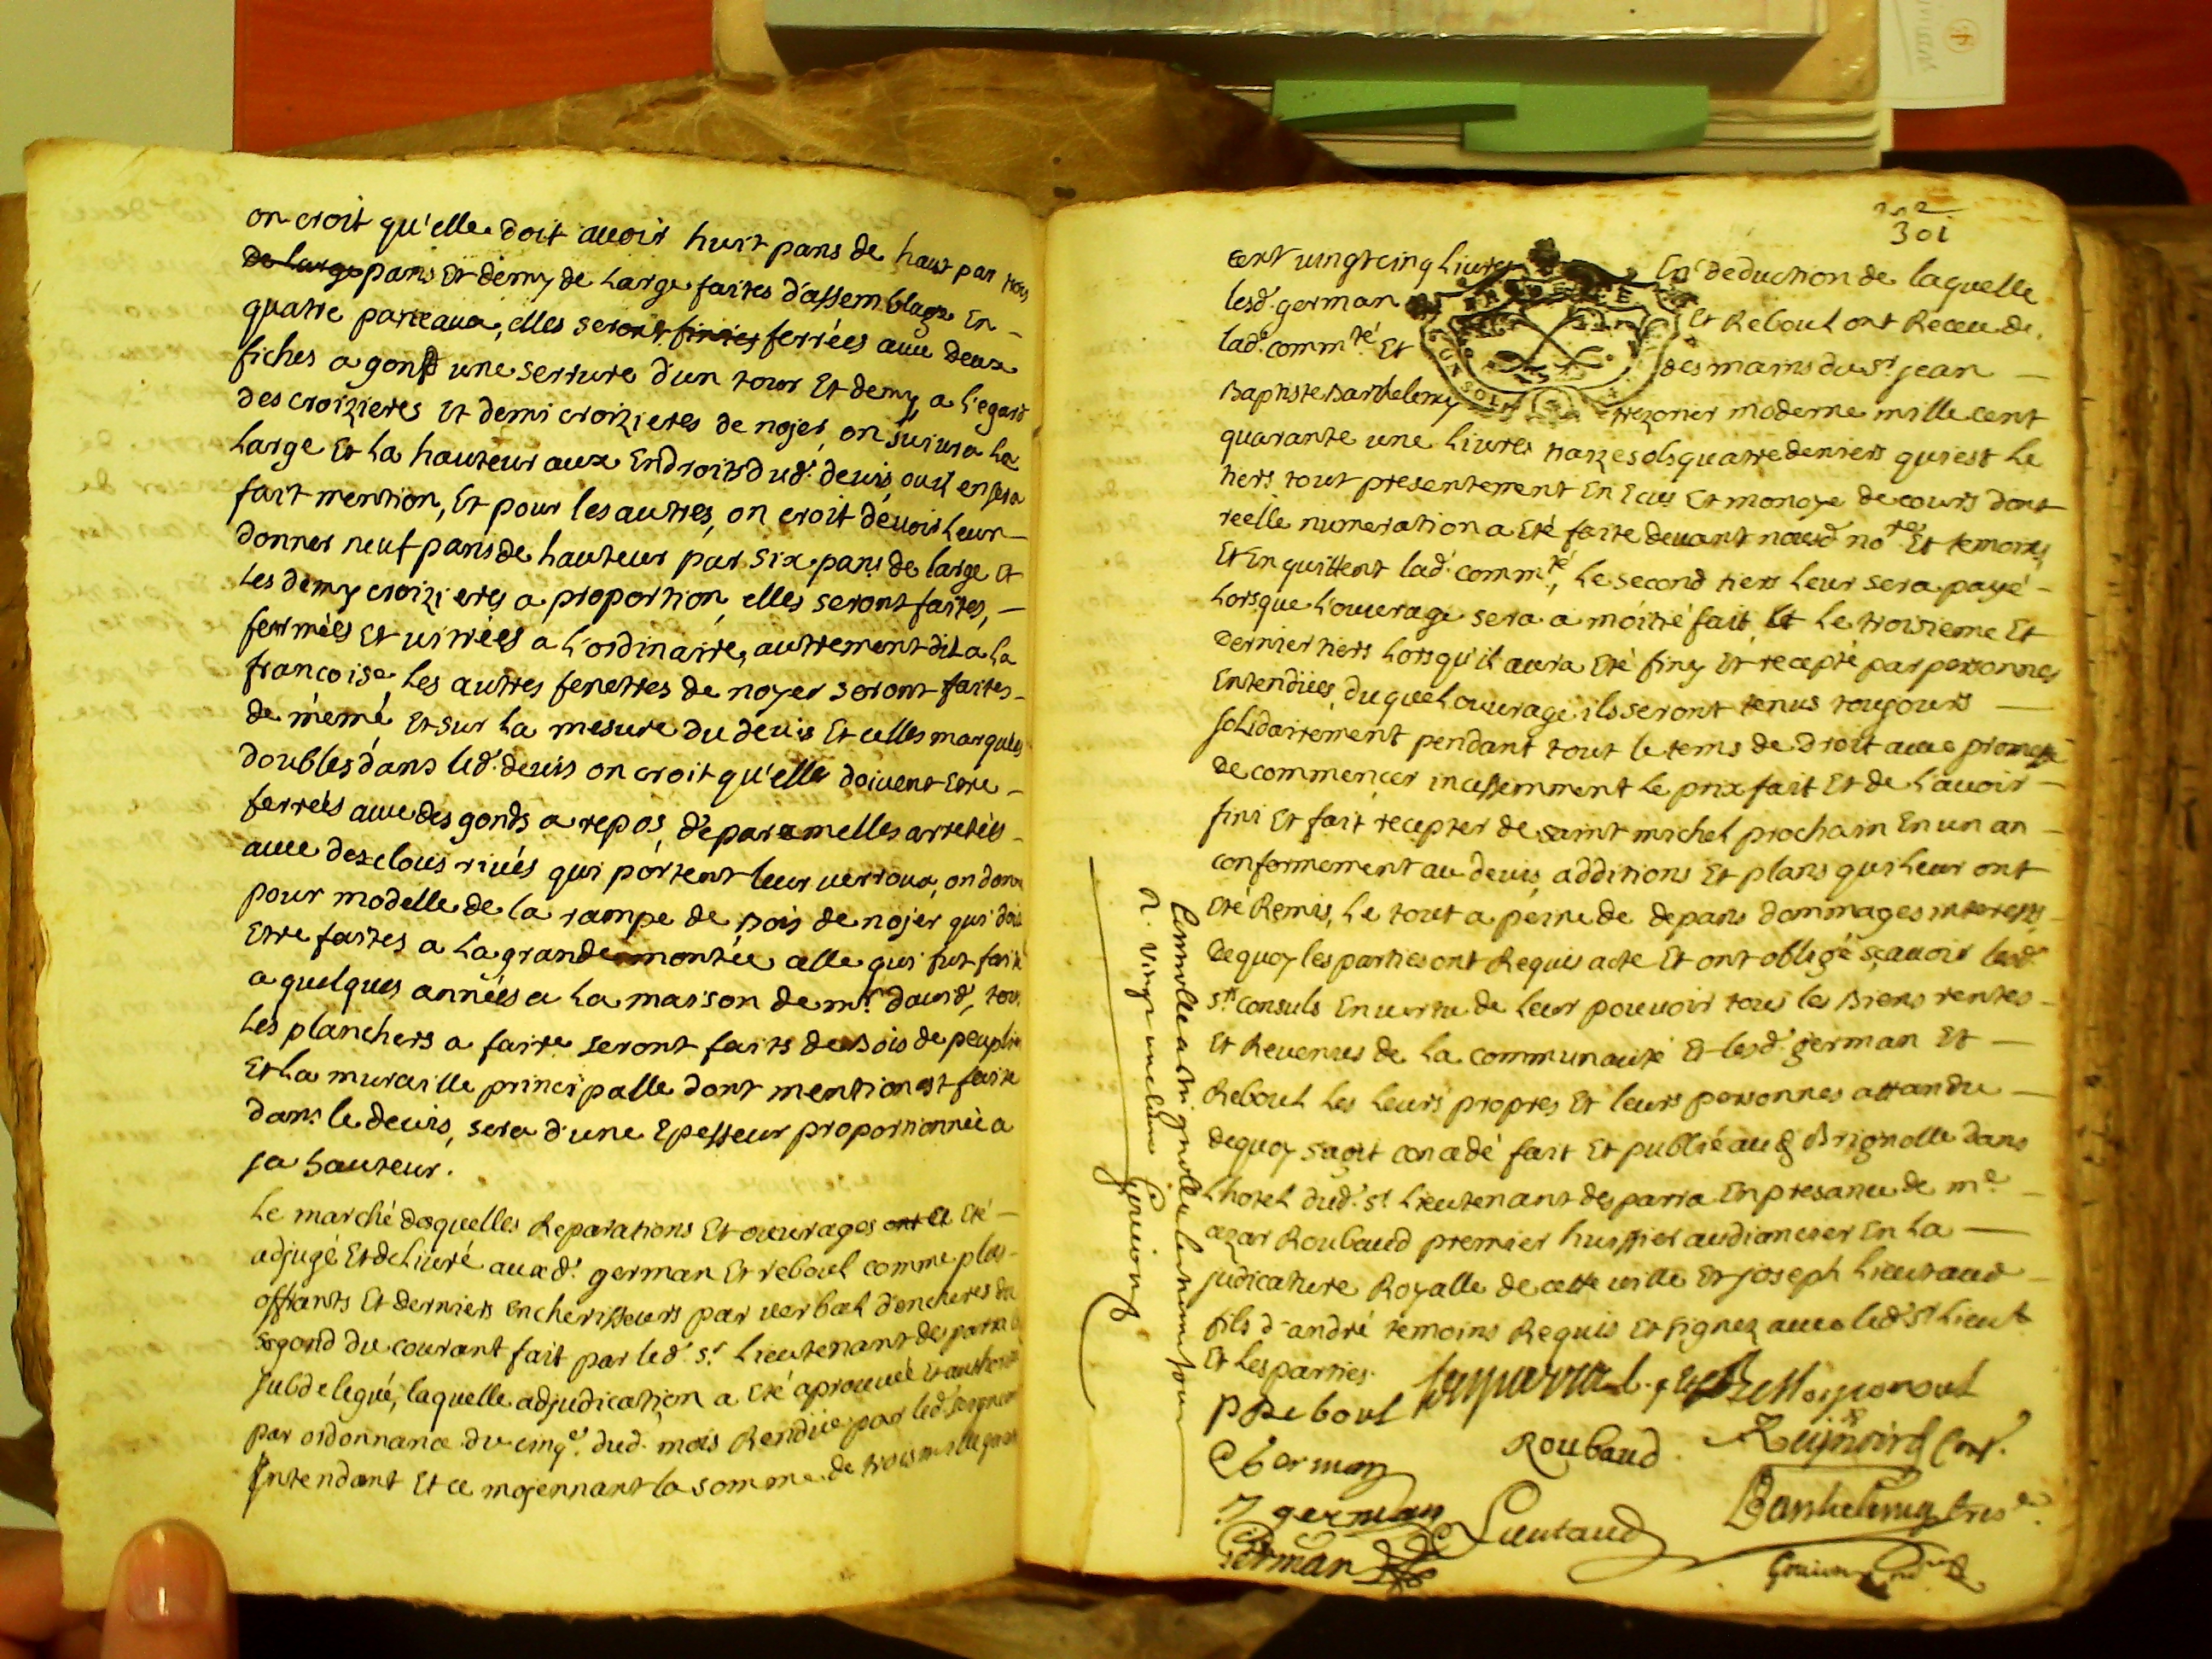 on croit qu'elle doit auoir huit pans de haut par trois
de large pans Et demy de Large faites d'assemblage En
quatre panneaux, elles seront finies ferrées auec deux
fiches a gond une serrure d'un tour Et demy, a l'egard
des croizieres Et demi croizieres de nojer, on suiura La
Large Et La hauteur aux Endroits dud. deuis ou il en sera
fait mention, Et pour les autres, on croit deuoir Leur
donner neuf pans de hauteur par six pans de large Et
Les demy croizieres a proportion, elles seront faites,
fermées Et uitrées a L'ordinaire, autrement dit a La
francoise, Les autres fenetres de noyer seront faites
de méme, Et sur La mesure du deuis Et celles marquées
doubles dans led. deuis on croit qu'elle doiuent Etre
ferreés auec des gonds a repos, de paramelles arretées
auec des clous riués qui portent leur uerroux, on donne
pour modelle de La rampe de Bois de nojer qui doit
Etre faites a La grande montée celle qui fut faite
a quelques années a La maison de mr. dauid, tous
Les planchers a faire seront faits de Bois de peuplie
Et La muraille principalle dont mention est faite
dans le deuis, sera d'une Epesseur proportionnée a
sa hauteur.
Le marché desquelles Reparations Et ouurages ont Eté
adjugé Et deliuré auxd. german Et reboul comme plus
offrants Et derniers encherisseurs par uerbal d'encheres du
segond du courant fait par led. sr. Lieutenant desparra
subdelegué, laquelle adjudication a Eté aprouueé Et authorisée
par ordonnance du cinqe. dud. mois Rendüe par led. seigneur
Intendant Et ce mojennant la somme de trois mille quatre
301
cent uingt cinq Liures En deduction de laquelle
lesd. german Et Reboul ont Receu de
lad. commté. Et des mains du sr. jean
Baptiste Barthelemy trezorier moderne mille cent
quarante une Liures traize sols quatre deniers qui est Le
tiers tout presentement En Ecus Et monoye de cours dont
réelle numeration a Eté faite deuant nousd. nore. Et temoins
Et En quittent lad. commté, Le second tiers Leur sera payé
Lorsque L'ouurage sera a moitié fait, Et Le troisieme Et
dernier tiers Lorsqu'il aura Eté finy Et recepté par personnes
Entendües, duquel ouurage ils seront tenus toujours
solidairement pendant tout le tems de Droit auec promesse
de commencer incessemment Le prix fait Et de L'auoir
fini Et fait recepter de saint michel prochain En un an
conformement au deuis, additions Et plans qui Leur ont
Eté Remis, Le tout a peine de depans dommages interests
de quoy les parties ont Requis acte Et ont obligé sçauoir lesd.
srs. consuls En uertu de Leur pouuoir tous les Biens rentes
Et Reuenus de La communauté Et lesd. german Et
Reboul Les Leurs propres Et leurs personnes attandu
de quoy s'agit concedé fait Et publié aud. Brignolle dans
L'hotel dud. sr. Lieutenant desparra En presance de me.
azar Roubaud premier huissier audiancier En La
judicature Royalle de cette uille Et joseph Lieutaud
fils d'andré temoins Requis Et signez auec led. sr. Lieut.
Et Les parties.
P Reboul
Roubaud
german
J german
German
Lieutaud
Barthelemy